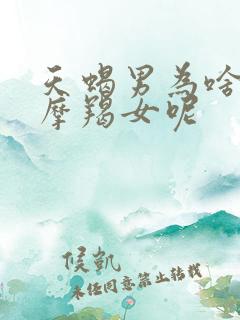 天蝎男為啥
摩羯女呢
侯凯
未经同意禁止转载